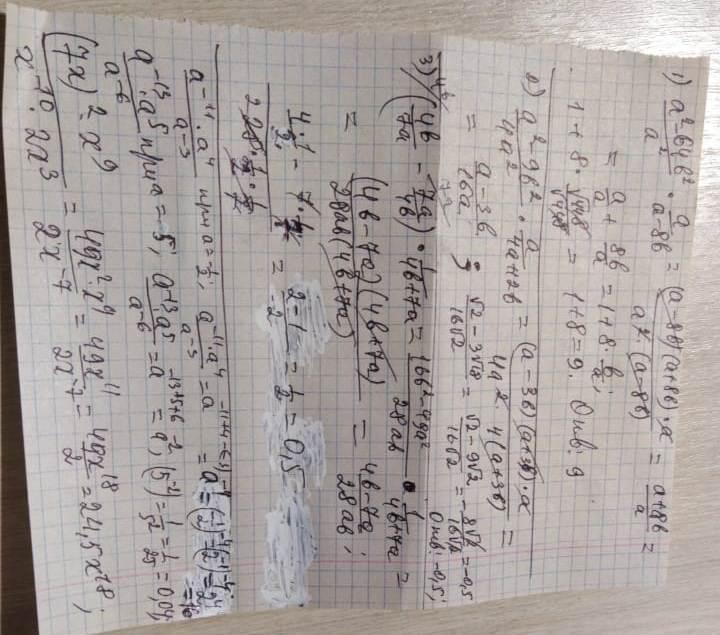 1) (a²-64b²)/a² · a/(a-8b) = ((a-8b)(a+8b)·a)/(a²·(a-8b)) = (a+8b)/a =
= a/a + 8b/a = 1+8·b/a;
1+8· = 1+8=9. Отв: 9
2) (a²-9b²)/4a² · = ((a-3b)(a+3b)·a)/(4a²·4(a+3b)) =
= (a-3b)/16a ; (√2-3√18)/16√2 = (√2-9√2)/16√2 = -8√2/16√2 = -0,5
Отв: -0,5;
3) (4b/7a - 7a/4b) · 1/(4b+7a) = (16b²-49a²)/28ab · 1/(4b+7a) =
= ((4b-7a)(4b+7a))/(28ab(4b+7a)) = (4b-7a)/28ab;
= (2-1)/ = 1/2 = 0,5
(a⁻¹¹·a⁴)/a⁻³ при a=-1/2; (a⁻¹¹·a⁴)/a⁻³ = a = a⁻⁴
(a⁻¹³·a⁵)/a⁻⁶ при a=5; (a⁻¹³·a⁵)/a⁻⁶ = a⁻¹³⁺⁵⁺⁶ = a⁻², (5)⁻² = 1/5² = 1/25 = 0,04;
((7x)²·x⁹)/(x⁻¹⁰·2x³) = (49x²·x⁹)/(2x⁻⁷) = 49x¹¹/2x⁻⁷ = 49x¹⁸/2 = 24,5x¹⁸;